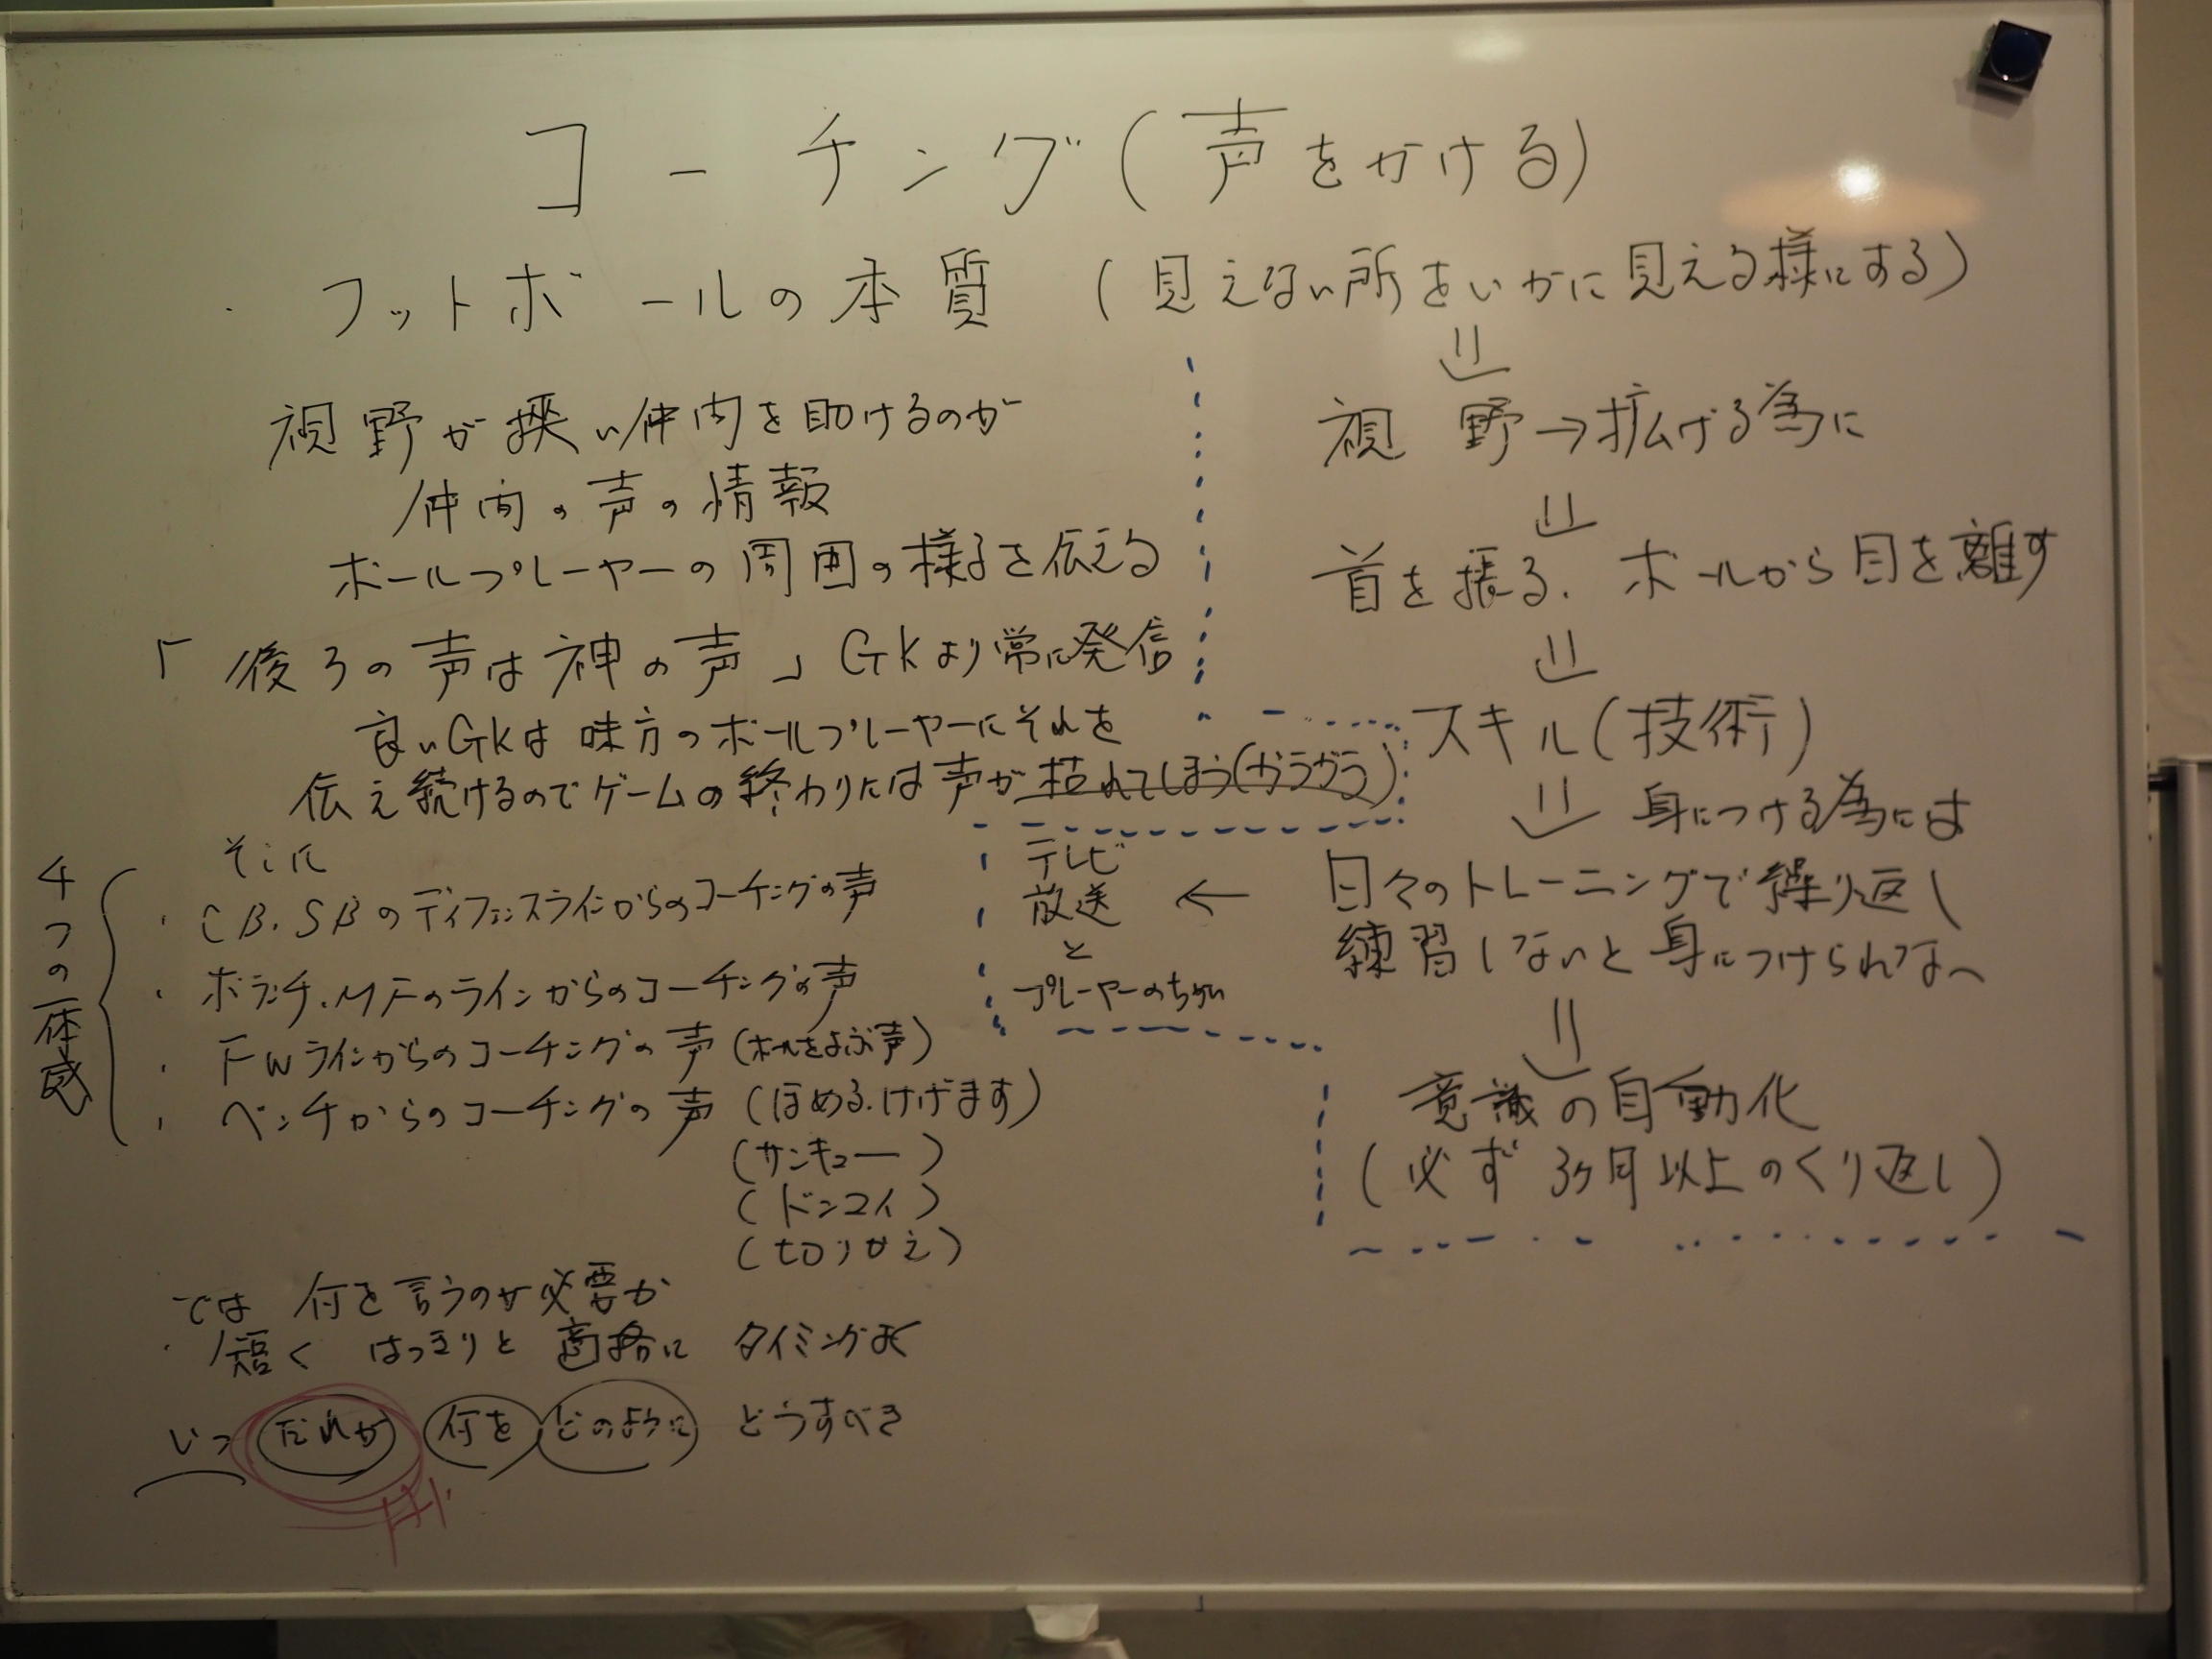 コーチング(声をかける)
・フットボールの本質 (見えない所をいかに見える様にする)
視野が狭い仲間を助けるのが
仲間の声の情報
ボールプレーヤーの周囲の様子を伝える
「後ろの声は神の声」GKより常に発信
良いGKは味方のボールプレーヤーにそれを
伝え続けるのでゲームの終わりには声が枯れてしまう(ガラガラ)
4つの一体感
・CB.SBのディフェンスラインからのコーチングの声
・ボランチ.MFのラインからのコーチングの声
・FWラインからのコーチングの声 (ボールをよぶ声)
・ベンチからのコーチングの声 (ほめる.はげます)
(サンキュー)
(ドンマイ)
(切りかえ)
では 何を言うのが必要か
・短く はっきりと 適格に タイミングよく
いつ だれが 何を どのように どうすべき
⇓
視野→拡げる為に
⇓
首を振る. ボールから目を離す
⇓
スキル(技術)
⇓ 身につける為には
日々のトレーニングで繰り返し
練習しないと身につけられない
←
テレビ
放送
と
プレーヤーのちがい
⇓
意識の自動化
(必ず3ヶ月以上のくり返し)